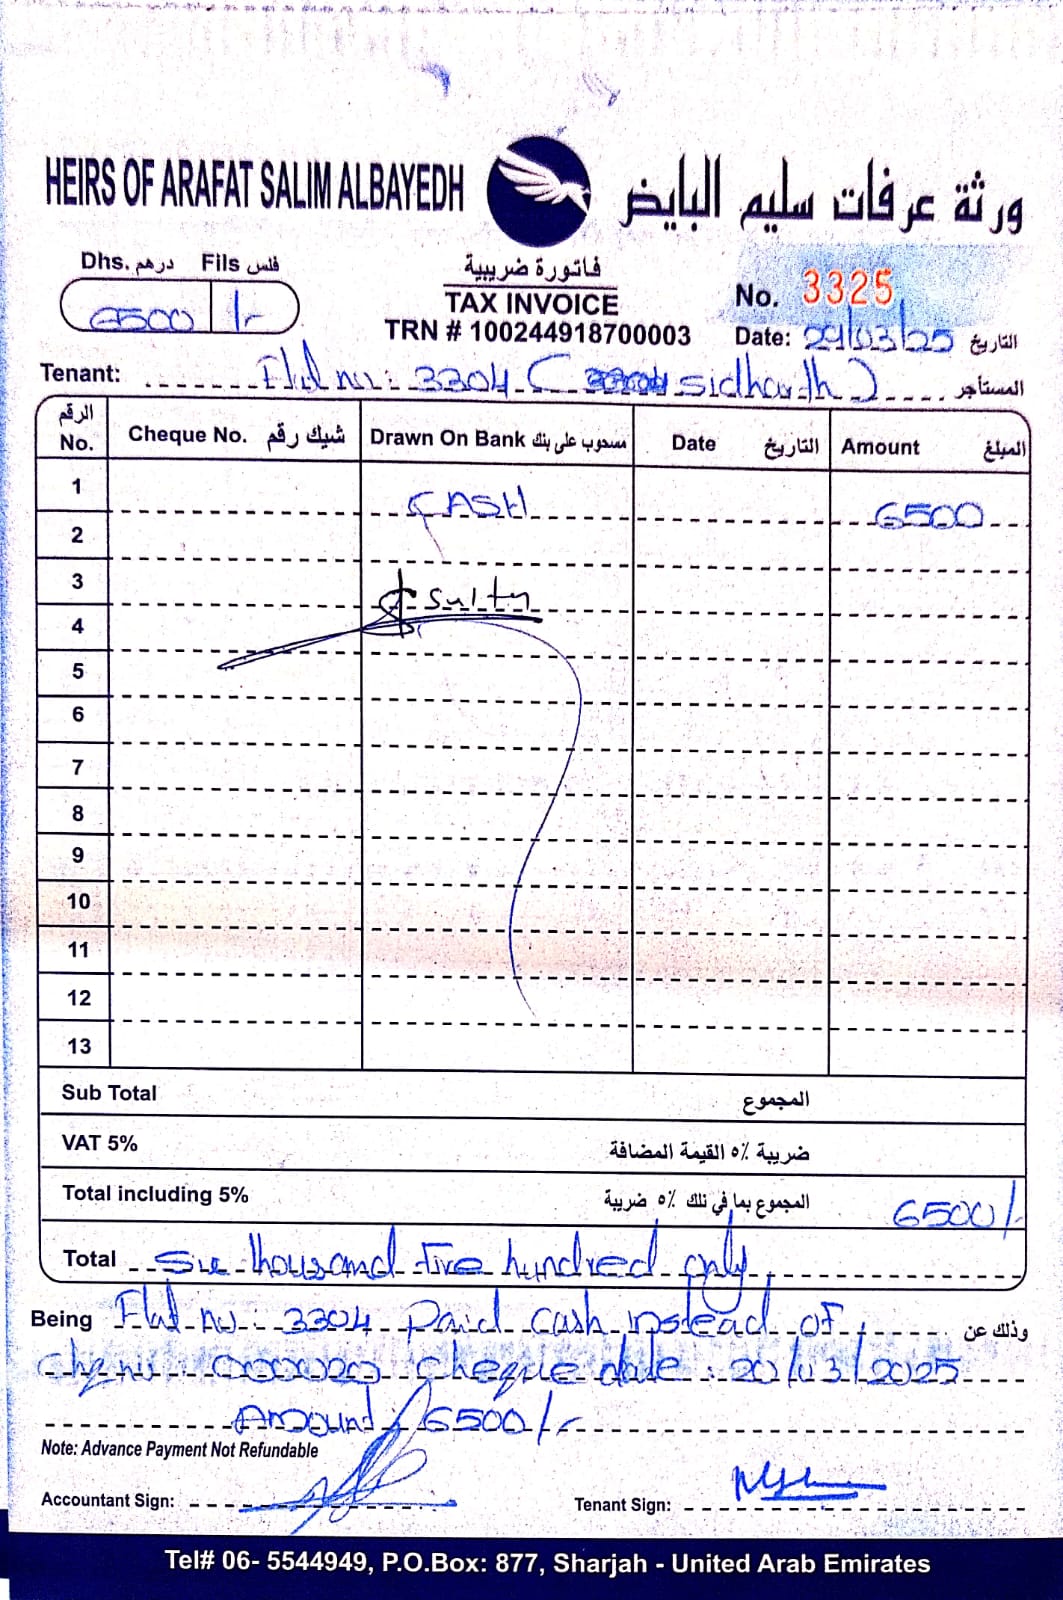 HEIRS OF ARAFAT SALIM ALBAYEDH
ورثة عرفات سليم البايض
Dhs. درهم Fils فلس
6500 /-
فاتورة ضريبية
TAX INVOICE
TRN # 100244918700003
No. 3325
Date: 29/03/25 التاريخ
Tenant: Flat no: 3304 ( sidharth ) المستأجر
الرقم No. Cheque No. شيك رقم Drawn On Bank مسحوب على بنك Date التاريخ Amount المبلغ
1 CASH 6500
2
3
4
5
6
7
8
9
10
11
12
13
Sub Total المجموع
VAT 5% ضريبة ٥٪ القيمة المضافة
Total including 5% المجموع بما في تلك ٥٪ ضريبة 6500/-
Total Six thousand five hundred only
Being Flat no: 3304 Paid cash instead of وذلك عن
Chq no: 000020 cheque date: 20/03/2025
Amount 6500/-
Note: Advance Payment Not Refundable
Accountant Sign:
Tenant Sign:
Tel# 06- 5544949, P.O.Box: 877, Sharjah - United Arab Emirates